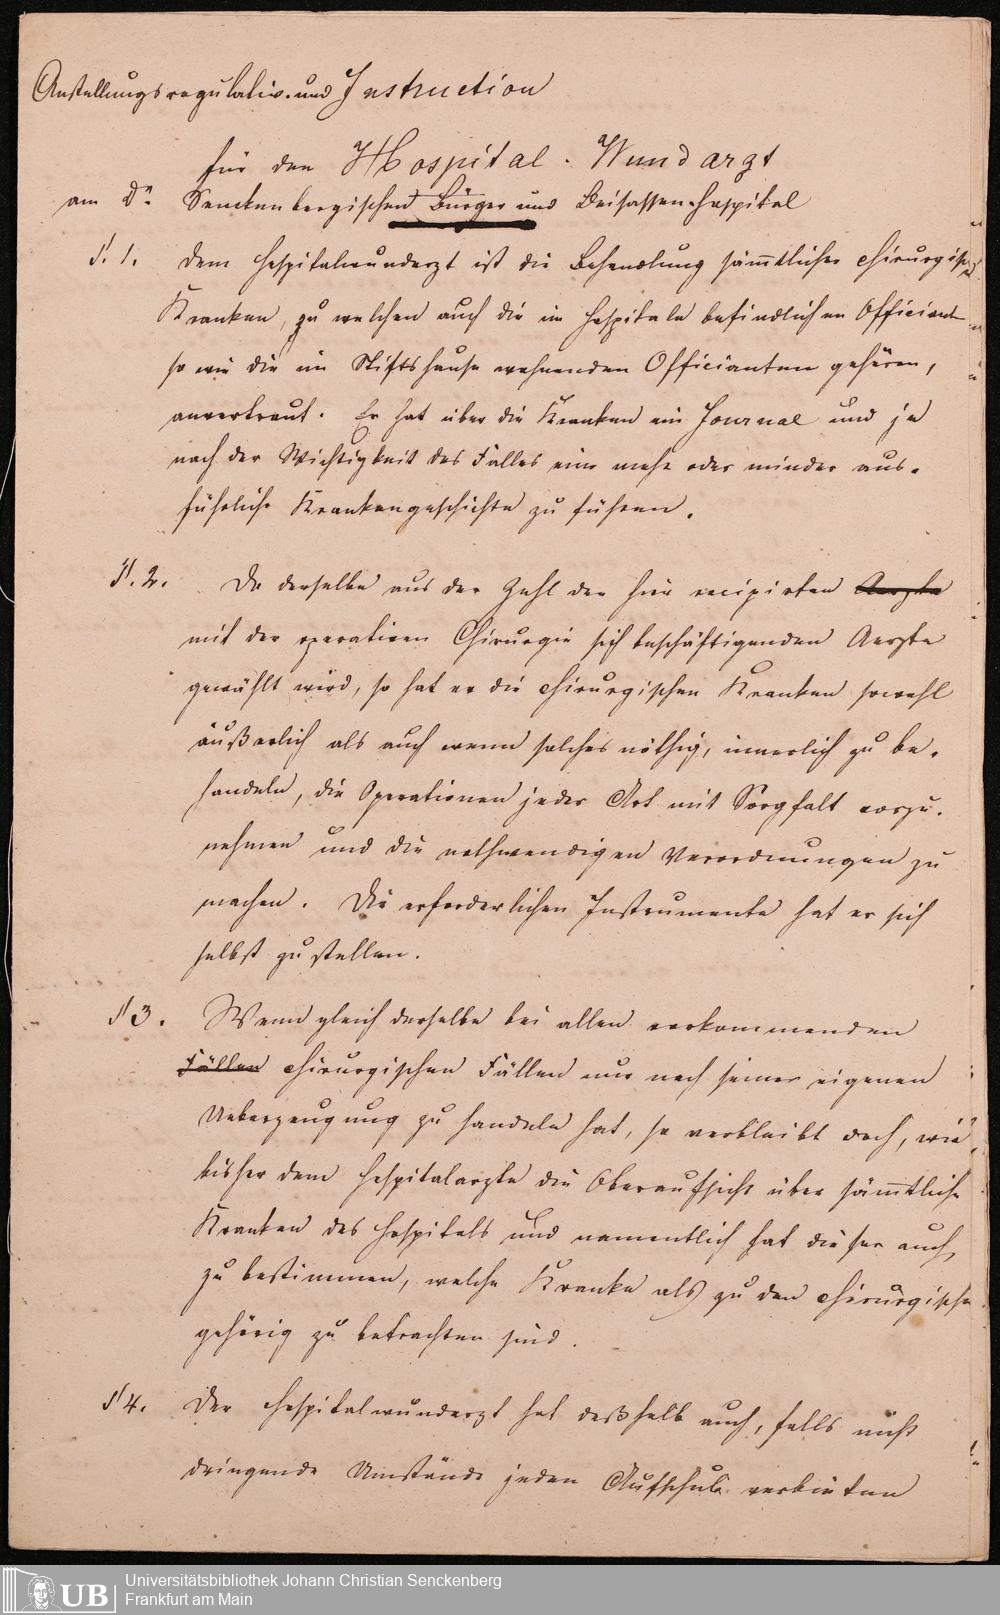 Anstellungsregulativ und Instruction
für den Hospital-Wundarzt
am Dr. Senckenbergischen Bürger und Beisassen-Hospital
§. 1. Dem Hospitalwundarzt ist die Behandlung sämmtlicher chirurgischen
Kranken, zu welchen auch die im Hospitale befindlichen Officiant
so wie die im Stiftshause wohnenden Officianten gehören,
anvertraut. Er hat über die Kranken ein Journal und je
nach der Wichtigkeit des Falles eine mehr oder minder aus-
führliche Krankengeschichte zu führen.
§. 2. Da derselbe aus der Zahl der hier recipirten Aerzte
mit der operativen Chirurgie sich beschäftigenden Aerzte
gewählt wird, so hat er die chirurgischen Kranken sowohl
äußerlich als auch wenn solches nöthig, innerlich zu be-
handeln, die Operationen jeder Art mit Sorgfalt vorzu-
nehmen und die nothwendigen Verordnungen zu
machen. Die erforderlichen Instrumente hat er sich
selbst zu stellen.
§ 3. Wenn gleich derselbe bei allen vorkommenden
Fällen chirurgischen Fällen nur nach seiner eigenen
Ueberzeugung zu handeln hat, so verbleibt doch, wie
bisher dem Hospitalarzte die Oberaufsicht über sämmtliche
Kranken des Hospitals und namentlich hat dieser auch
zu bestimmen, welche Kranke als zu den chirurgischen
gehörig zu betrachten sind.
§ 4. Der Hospitalwundarzt hat deßhalb auch, falls nicht
dringende Umstände jeden Aufschub verbieten
UB
Universitätsbibliothek Johann Christian Senckenberg
Frankfurt am Main